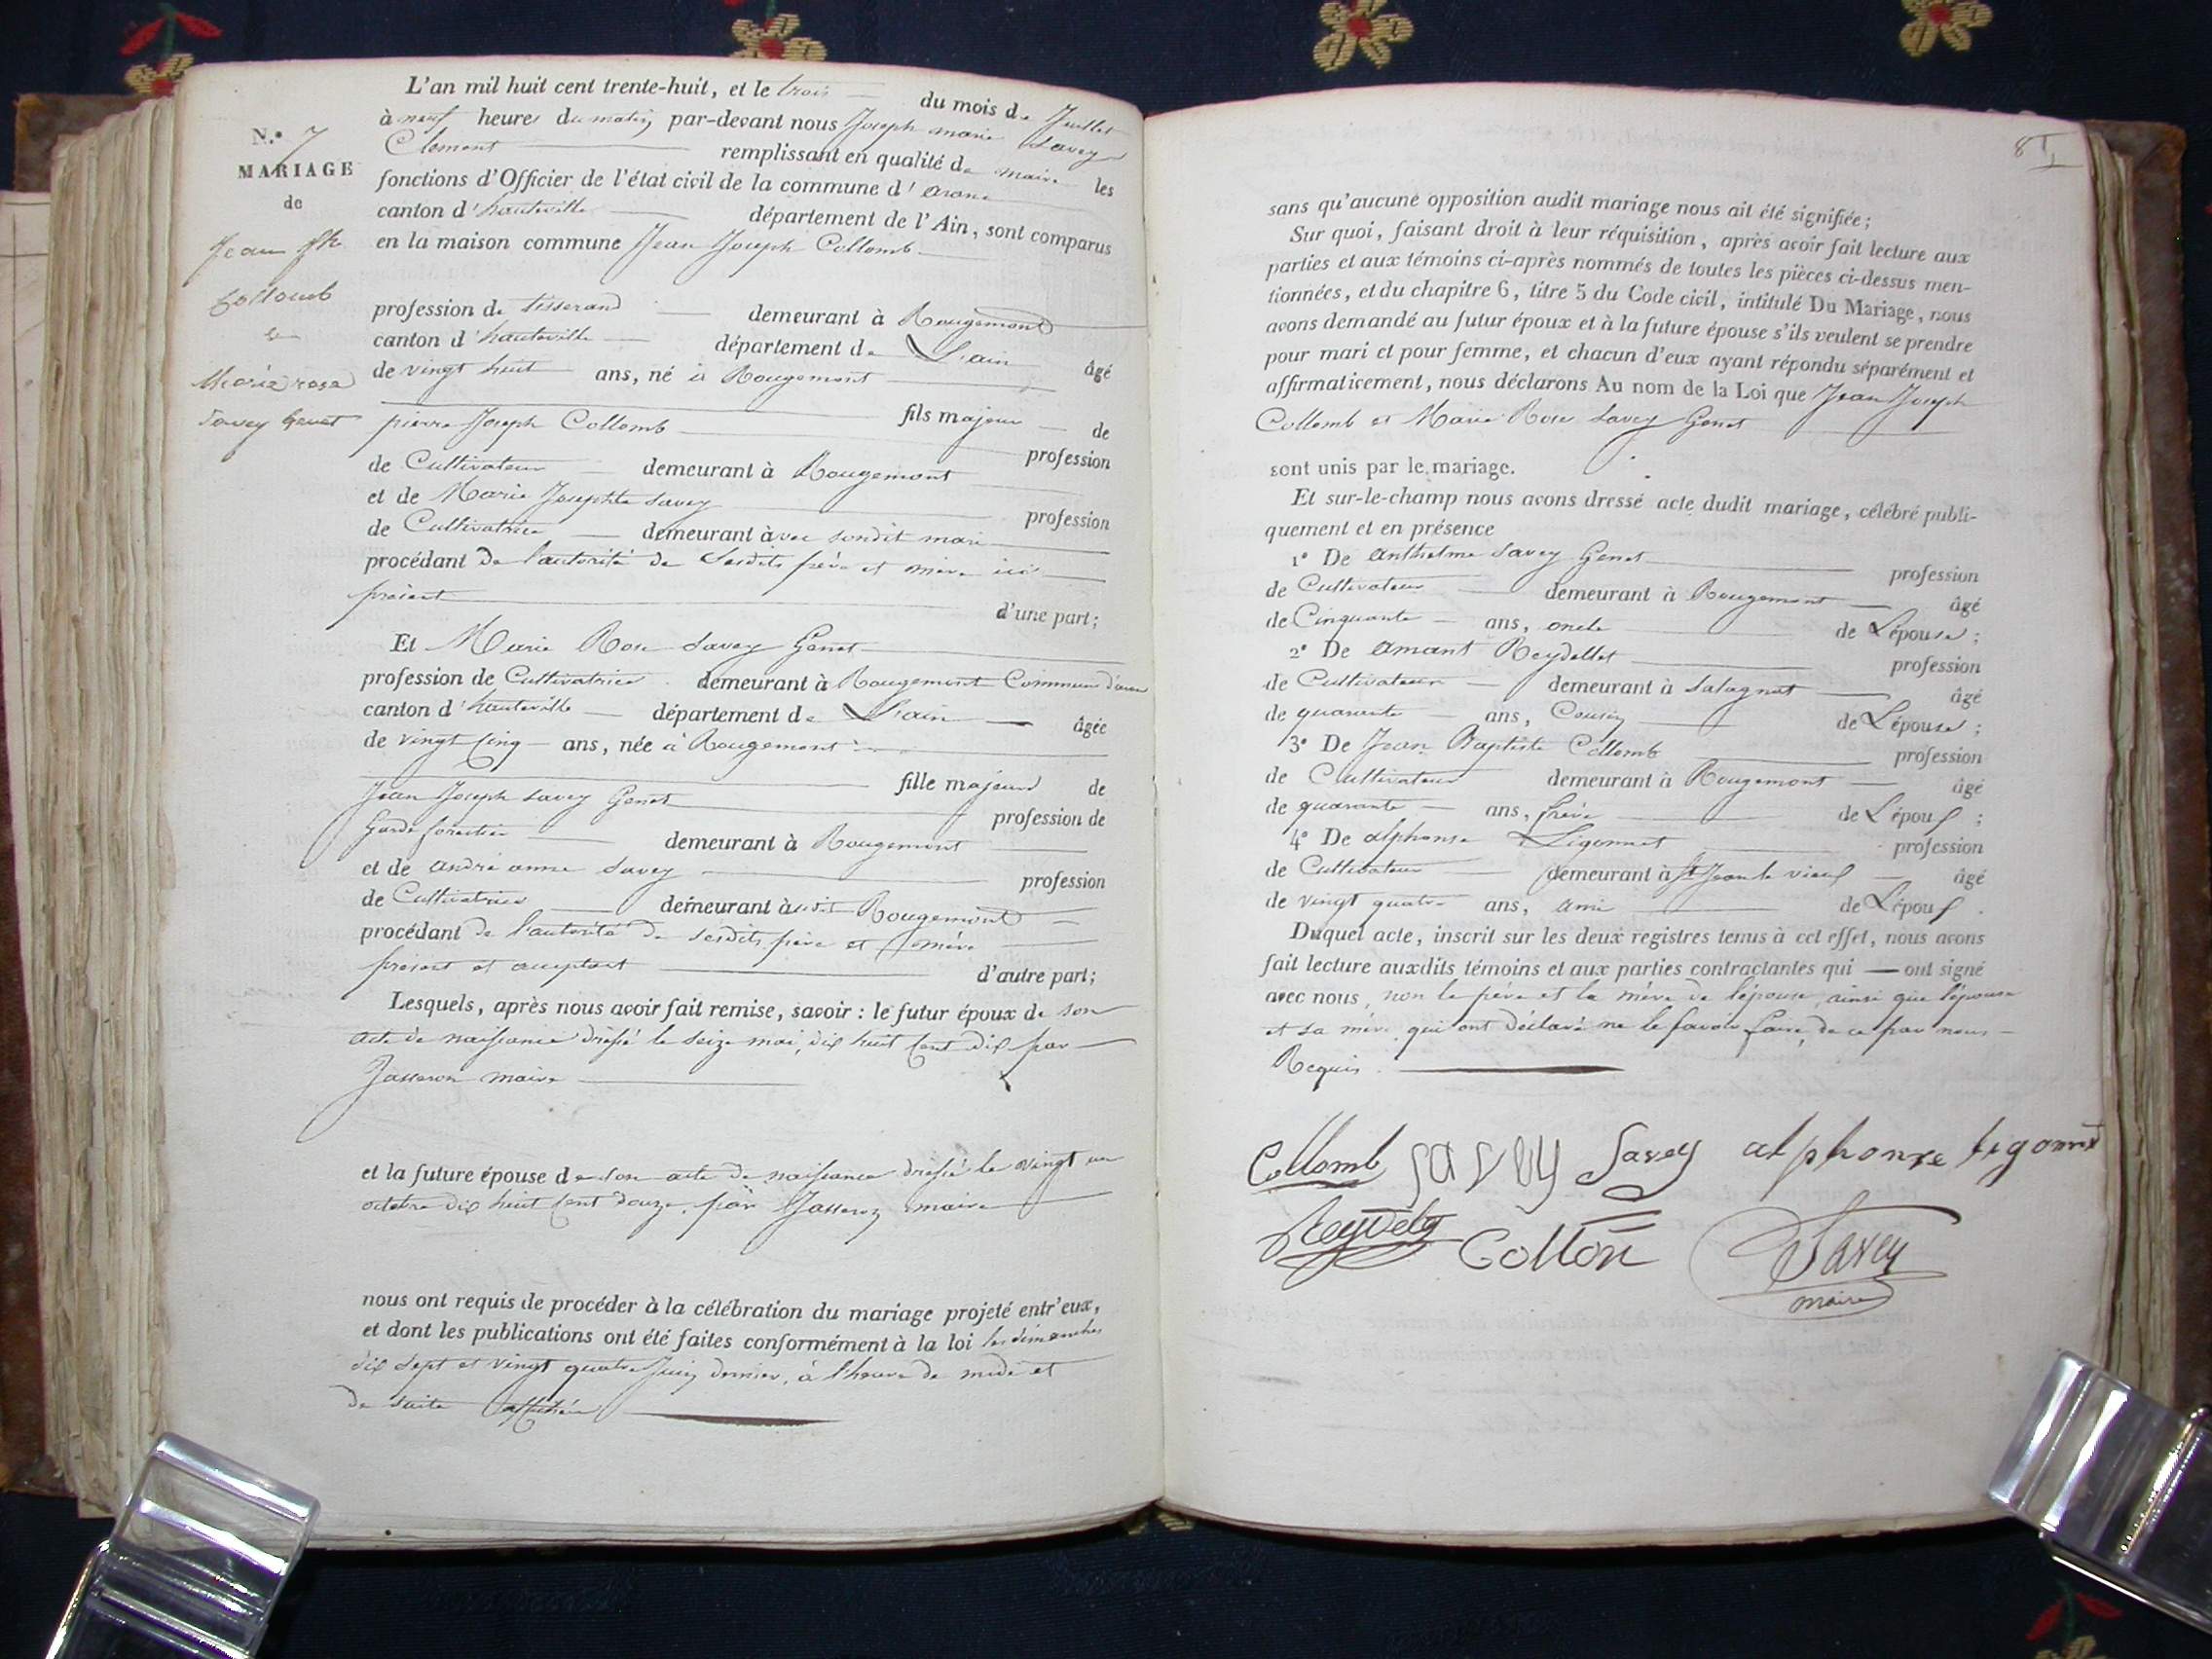 N.º 7
MARIAGE
de
Jean Jh
Collomb
&
Marie rose
Savey Genet
L'an mil huit cent trente-huit, et le trois du mois de Juillet
à neuf heures du matin, par-devant nous Joseph marie Savey
Clement remplissant en qualité de maire les
fonctions d'Officier de l'état civil de la commune d'arane
canton d'hauteville département de l'Ain, sont comparus
en la maison commune Jean Joseph Collomb
profession de tisserand demeurant à Rougemont
canton d'hauteville département de L'ain âgé
de vingt huit ans, né à Rougemont
fils majeur de
pierre Joseph Collomb profession
de Cultivateur demeurant à Rougemont
et de Marie Josephte Savey profession
de Cultivatrice demeurant avec sondit mari
procédant de l'autorité de sesdits père et mère ici
présent d'une part;
Et Marie Rose Savey Genet
profession de Cultivatrice demeurant à Rougemont Commune d'aran
canton d'hauteville département de L'ain âgée
de vingt cinq ans, née à Rougemont
fille majeure de
Jean Joseph Savey Genet profession de
Garde forestier demeurant à Rougemont
et de andré anne Savey profession
de Cultivatrice demeurant à Rougemont
procédant de l'autorité de sesdits père et mère
présent et acceptant d'autre part;
Lesquels, après nous avoir fait remise, savoir: le futur époux de son
acte de naissance dressé le seize mai, dix huit cent dix par
Jasseron maire
et la future épouse de son acte de naissance dressé le vingt un
octobre dix huit cent douze, par Jasseron maire
nous ont requis de procéder à la célébration du mariage projeté entr'eux,
et dont les publications ont été faites conformément à la loi les dimanches
dix sept et vingt quatre Juin dernier, à l'heure de midi et
de suite affichée
sans qu'aucune opposition audit mariage nous ait été signifiée;
Sur quoi, faisant droit à leur réquisition, après avoir fait lecture aux
parties et aux témoins ci-après nommés de toutes les pièces ci-dessus men-
tionnées, et du chapitre 6, titre 5 du Code civil, intitulé Du Mariage, nous
avons demandé au futur époux et à la future épouse s'ils veulent se prendre
pour mari et pour femme, et chacun d'eux ayant répondu séparément et
affirmativement, nous déclarons Au nom de la Loi que Jean Joseph
Collomb et Marie Rose Savey Genet
sont unis par le mariage.
Et sur-le-champ nous avons dressé acte dudit mariage, célébré publi-
quement et en présence
1º De anthelme Savey Genet profession
de Cultivateur demeurant à Rougemont âgé
de Cinquante ans, oncle de L'épouse;
2º De amant Reydellet profession
de Cultivateur demeurant à Salagnat âgé
de quarante ans, Cousin de L'épouse;
3º De Jean Baptiste Collomb profession
de Cultivateur demeurant à Rougemont âgé
de quarante ans, frère de L'époux;
4º De alphonse Ligonnet profession
de Cultivateur demeurant à St Jean le vieux âgé
de vingt quatre ans, ami de L'époux.
Duquel acte, inscrit sur les deux registres tenus à cet effet, nous avons
fait lecture auxdits témoins et aux parties contractantes qui ont signé
avec nous, non le père et la mère de l'épouse, ainsi que l'épouse
et sa mère, qui ont déclaré ne le savoir faire, de ce par nous
Requis.
Collomb savey Savey alphonse ligonnet
Reydelet Collon Savey
maire